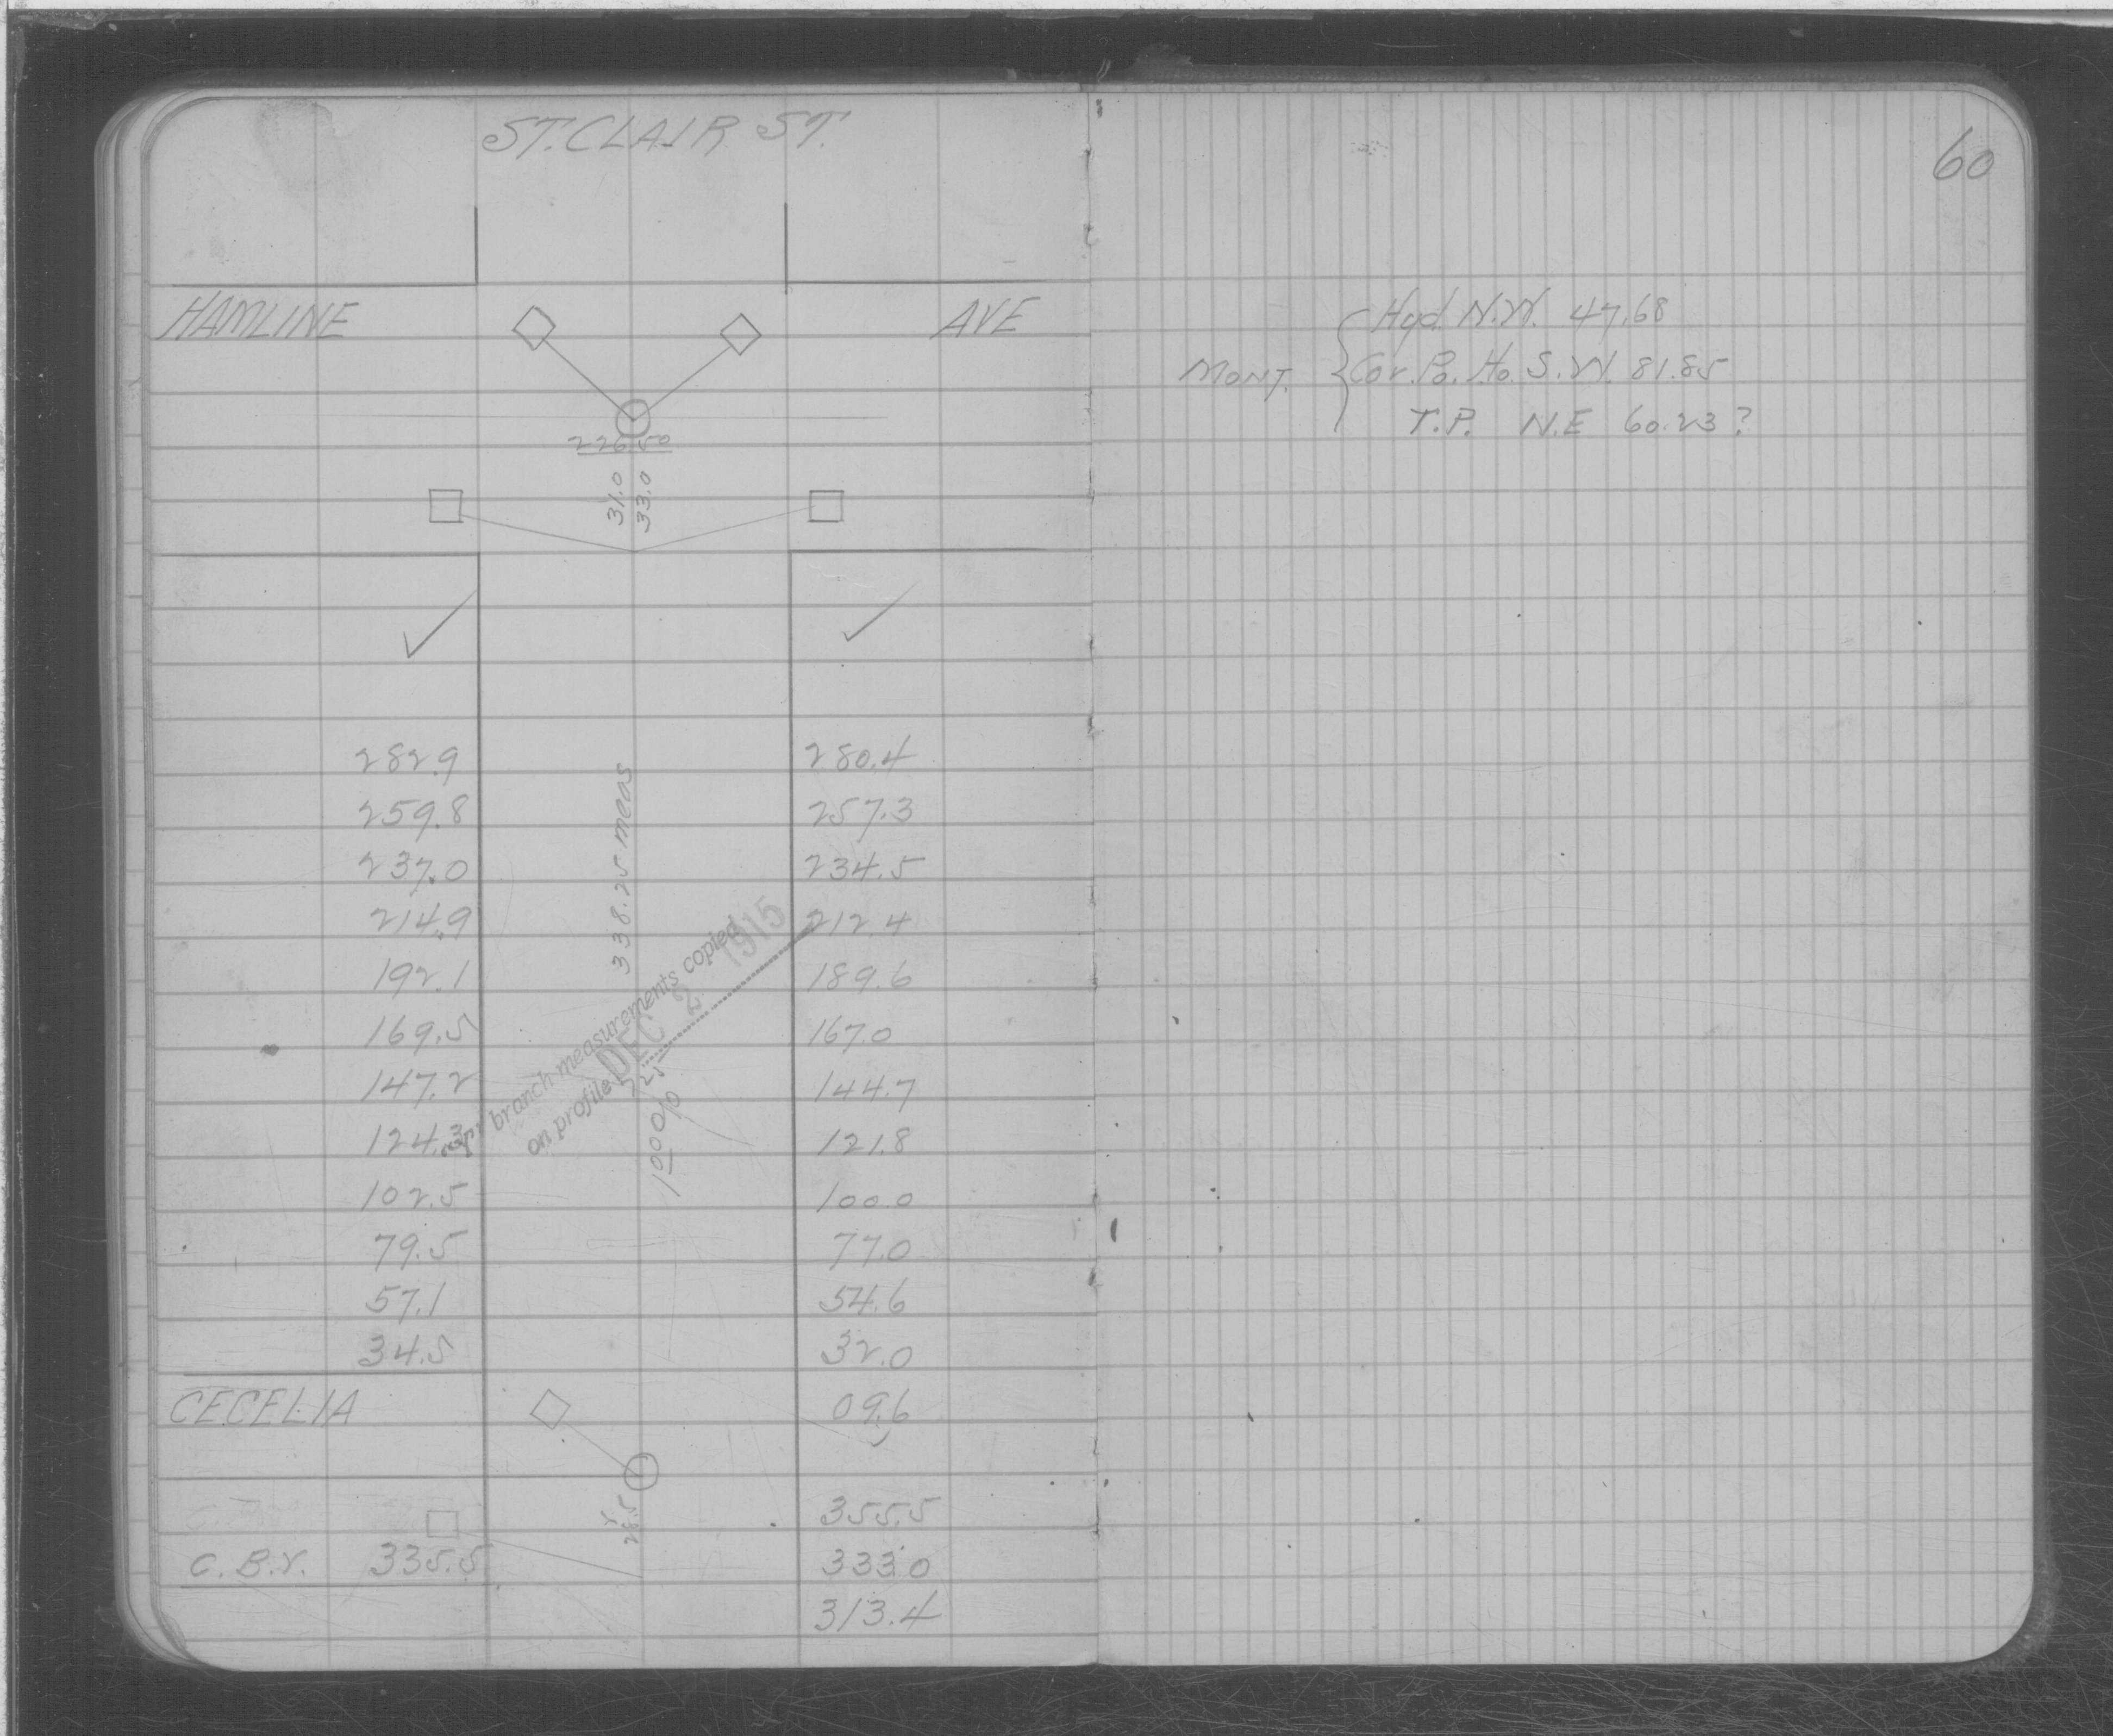 ST. CLAIR ST.
60
HAMLINE AVE
226.50
31.0
33.0
MONT. Hyd. N.W. 47.68
Cor. Po. Ho. S.W. 81.85
T.P. N.E 60.23?
282.9 280.4
259.8 257.3
237.0 234.5
214.9 212.4
192.1 189.6
169.5 167.0
147.2 144.7
124.3 121.8
102.5 100.0
79.5 77.0
57.1 54.6
34.5 32.0
338.25 meas
branch measurements copied
on profile DEC 2 1915
CECELIA 09.6
355.5
28.5
C.B.Y. 335.5 333.0
313.4